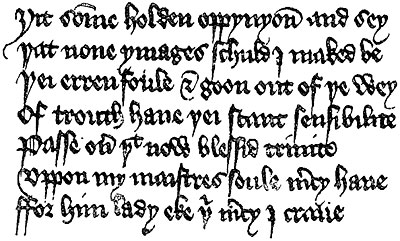 Yit som̅e holden oppynyon̅ and sey
yat none ymages schuld I maked be
yei erren foule & goon out of ye wey
Of trouth haue yei scant sensibilite
Passe ou̅ yᵗ now blessid trinite
Vppon my maistres soule m̅cy haue
ffor him lady eke yⁱ m̅cy I craue